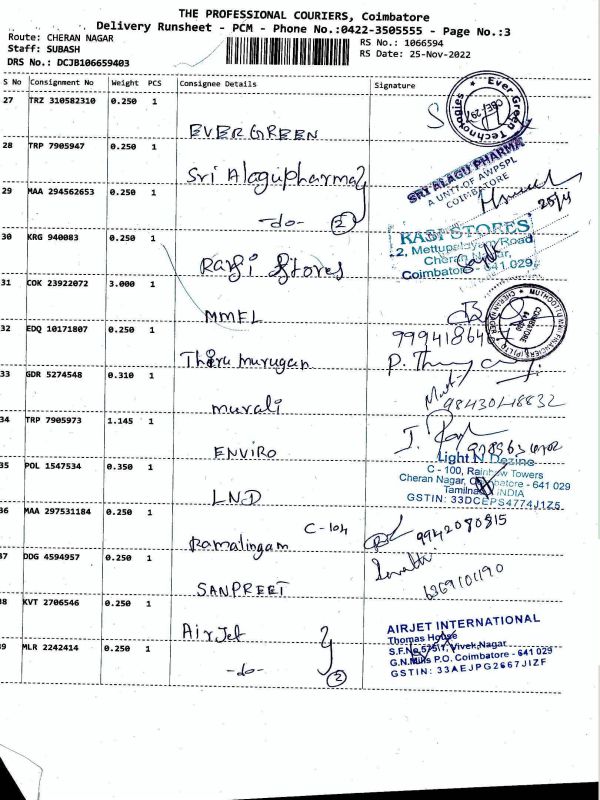 THE PROFESSIONAL COURIERS, Coimbatore
Delivery Runsheet - PCM - Phone No.:0422-3505555 - Page No.:3
Route: CHERAN NAGAR
RS No.: 1066594
Staff: SUBASH
RS Date: 25-Nov-2022
DRS No.: DCJB106659403
S No Consignment No Weight PCS Consignee Details Signature
27 TRZ 310582310 0.250 1
EVERGREEN
Ever Green Technologies
28 TRP 7905947 0.250 1
Sri Alagupharma
SRI ALAGU PHARMA
A UNIT OF AWPSPL
COIMBATORE
29 MAA 294562653 0.250 1
-do- 2
25/11
30 KRG 940083 0.250 1
Rasi Stores
RASI STORES
2, Mettupalayam Road
Cheran Nagar,
Coimbatore - 641 029
31 COK 23922072 3.000 1
MMFL
32 EDQ 10171807 0.250 1
Thirumurugan
33 GDR 5274548 0.310 1
murali
9843048832
34 TRP 7905973 1.145 1
ENVIRO
35 POL 1547534 0.350 1
LND
Light N Dezine
C - 100, Rainbow Towers
Cheran Nagar, Coimbatore - 641 029
Tamilnadu INDIA
GSTIN: 33DCEPS4774J1Z6
36 MAA 297531184 0.250 1
Ramalingam C-104
9942080815
37 DDG 4594957 0.250 1
SANPREET
6369101190
38 KVT 2706546 0.250 1
Airjet
AIRJET INTERNATIONAL
Thomas House
S.F.No.525/1, Vivek Nagar
G.N.Mills P.O. Coimbatore - 641 029
GSTIN: 33AEJPG2667J1ZF
39 MLR 2242414 0.250 1
-do- 2